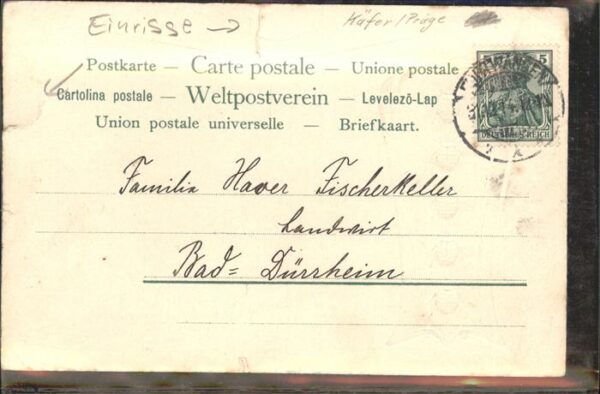 Einrisse →
Käfer/Präge
Postkarte — Carte postale — Unione postale
Cartolina postale — Weltpostverein — Levelező-Lap
Union postale universelle — Briefkaart.
5
DEUTSCHES REICH
Familie Haver Fischerkeller
Landwirt
Bad= Dürrheim